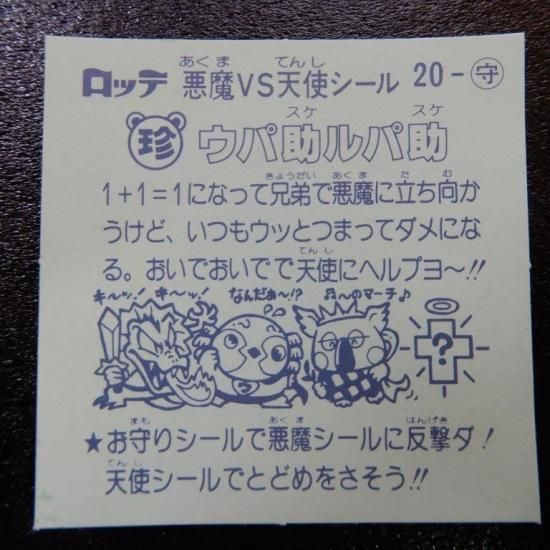 ロッテ 悪魔VS天使シール 20-守
あくま てんし
珍 ウパ助ルパ助
スケ スケ
1+1=1になって兄弟で悪魔に立ち向か
きょうだい あくま た む
うけど、いつもウッとつまってダメにな
る。おいでおいでで天使にヘルプヨ〜!!
てんし
キ〜ッ! キ〜ッ! なんだぁ〜!? ♬〜のマーチ♪
?
★お守りシールで悪魔シールに反撃ダ!
まも あくま はんげき
天使シールでとどめをさそう!!
てんし